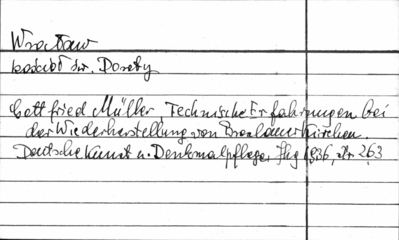 Wrocław
kościół św. Doroty
Gottfried Müller, Technische Erfahrungen bei
der Wiederherstellung von Breslauer Kirchen.
Deutsche Kunst u. Denkmalpflege, Jhg 1936, str. 263